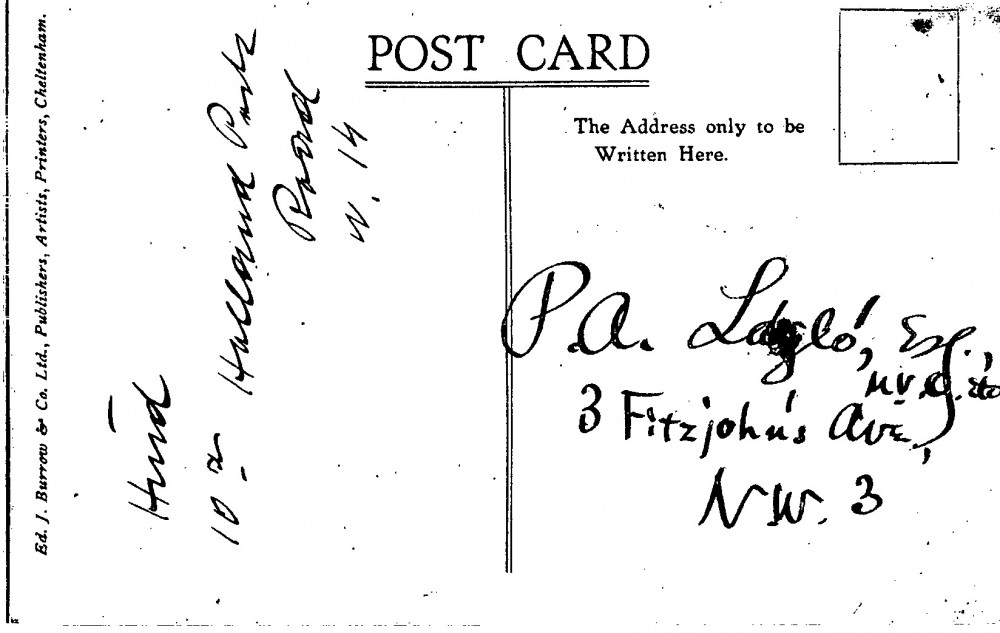 POST CARD
The Address only to be
Written Here.
P.A. László, Esq.,
M.V.O. etc
3 Fitzjohn's Ave,
N.W. 3
10 Holland Park
Road
W. 14
Ed. J. Burrow & Co. Ltd., Publishers, Artists, Printers, Cheltenham.